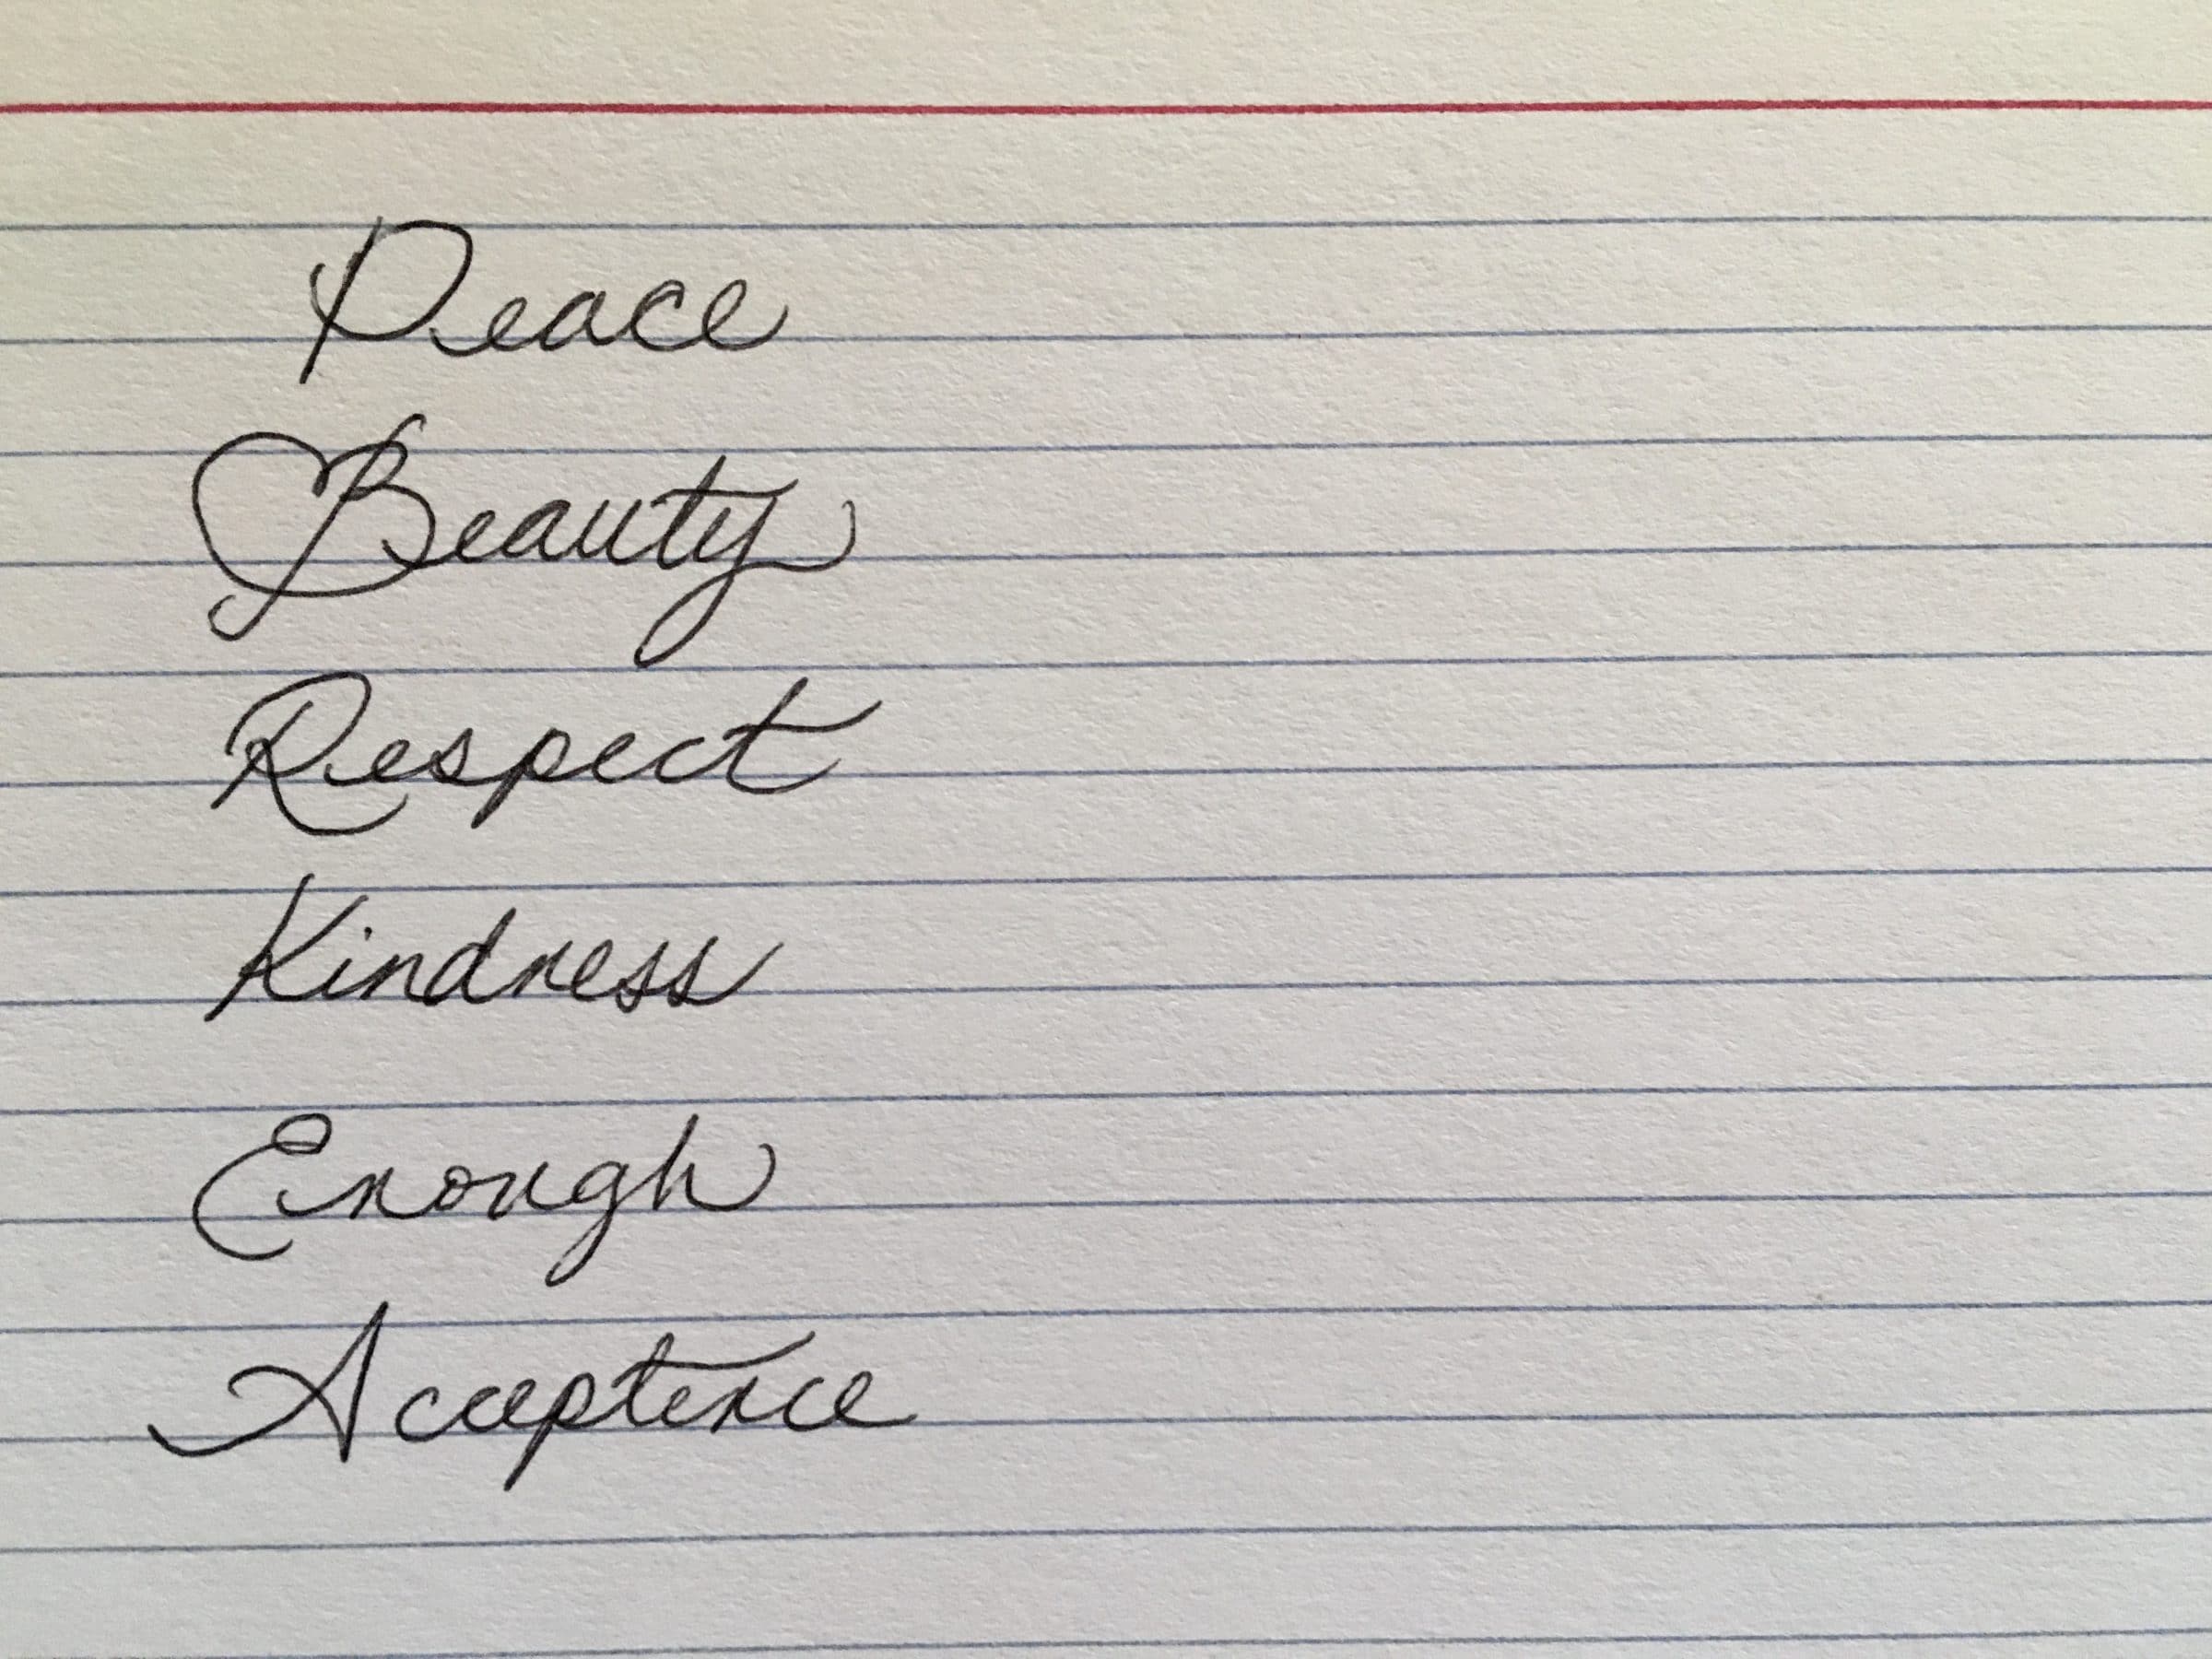 Peace
Beauty
Respect
Kindness
Enough
Acceptence